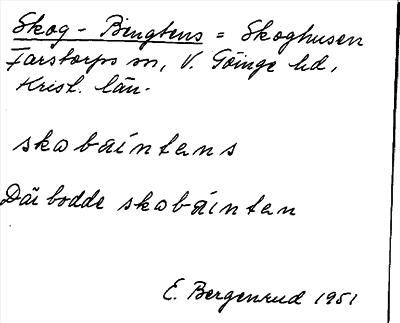 Skog - Bengtens = Skoghusen
Farstorps sn, V. Göinge hd,
Krist. län.
skobäintens
Där bodde skobäinten
E. Bergenrud 1951